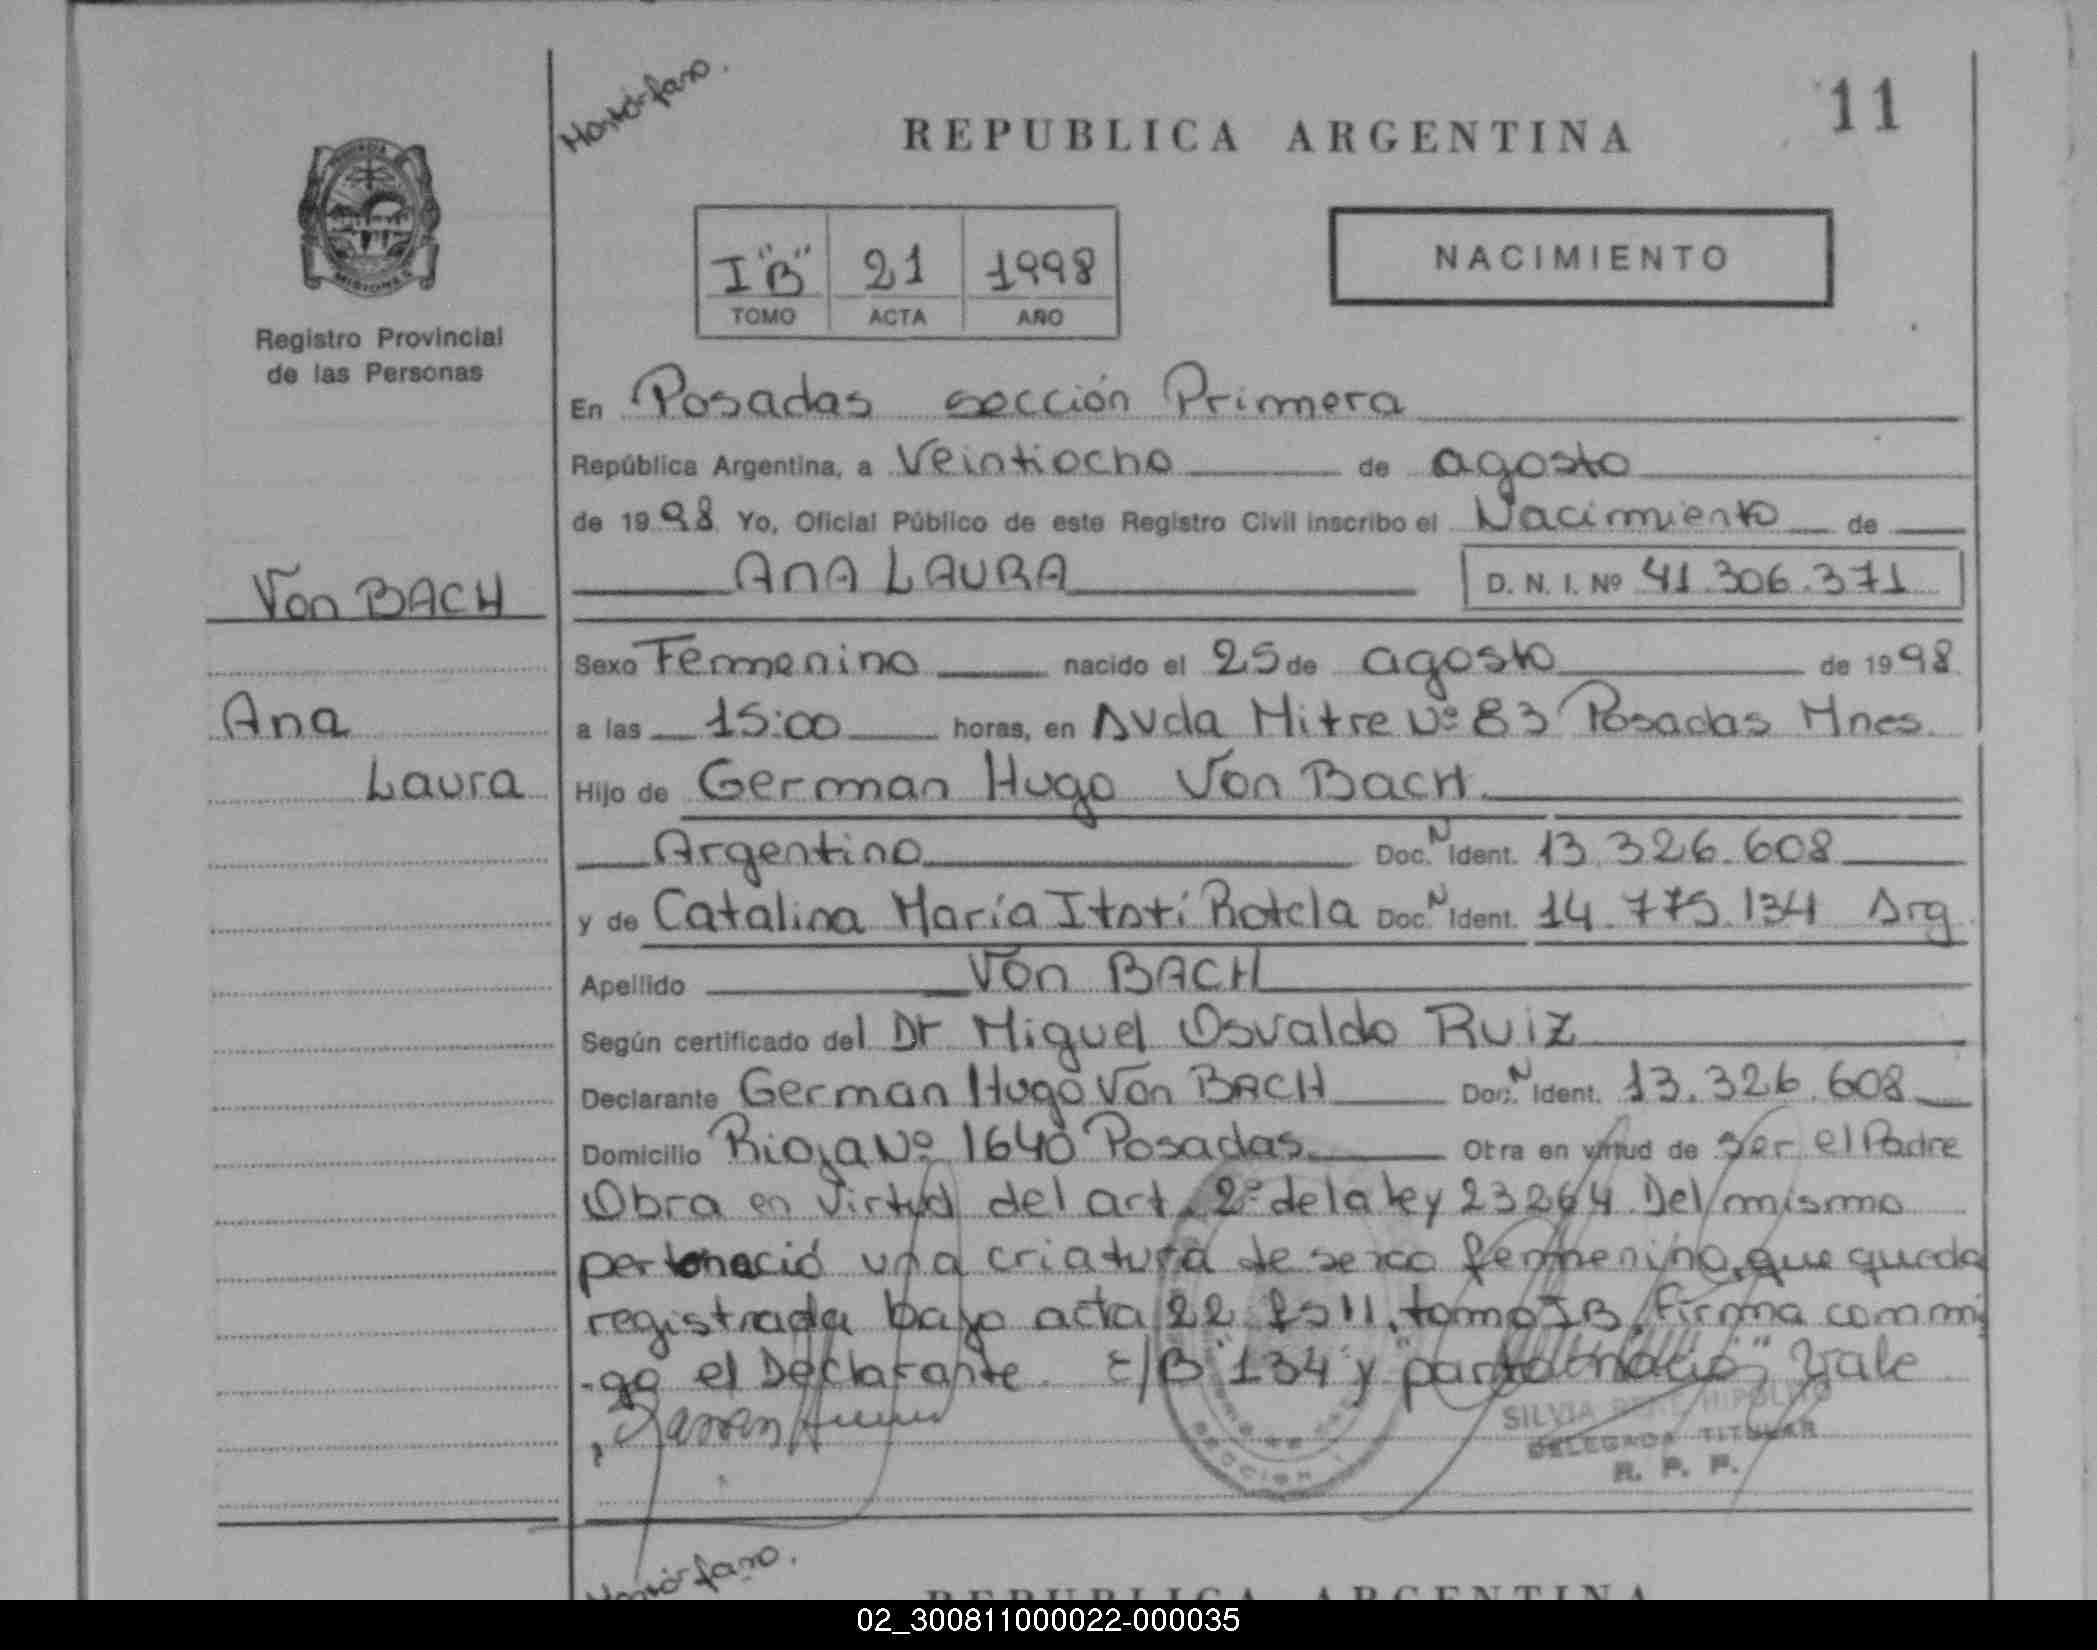 11
REPUBLICA ARGENTINA
NACIMIENTO
I "B" 21 1998
TOMO ACTA AÑO
MISIONES
Registro Provincial
de las Personas
En Posadas sección Primera
República Argentina, a Veintiocho de agosto
de 1998 Yo, Oficial Público de este Registro Civil inscribo el Nacimiento de
ANA LAURA D. N. I. Nº 41.306.371
Von BACH
Ana
Laura
Sexo Femenino nacido el 25 de agosto de 1998
a las 15:00 horas, en Avda Mitre Nº 83 Posadas Mnes.
Hijo de German Hugo Von BacH
Argentino Doc. N Ident. 13.326.608
y de Catalina María Itatí Rotela Doc. N Ident. 14.775.134 Arg
Apellido Von BACH
Según certificado del Dr Miguel Osvaldo Ruiz
Declarante German Hugo Von BACH Doc. N Ident. 13.326.608
Domicilio Rioja Nº 1640 Posadas Otra en virtud de ser el Padre
Obra en virtud del art. 2º de la ley 23264. Del mismo
una criatura de sexo femenino, que queda
registrada bajo acta 22 Fº 11, tomo IB, Firma conmi
-go el Declarante. E/B "134" y Vale
SILVIA HIPOLITO
DELEGADA TITULAR
R. P. P.
SECCION
REPUBLICA ARGENTINA
02_300811000022-000035